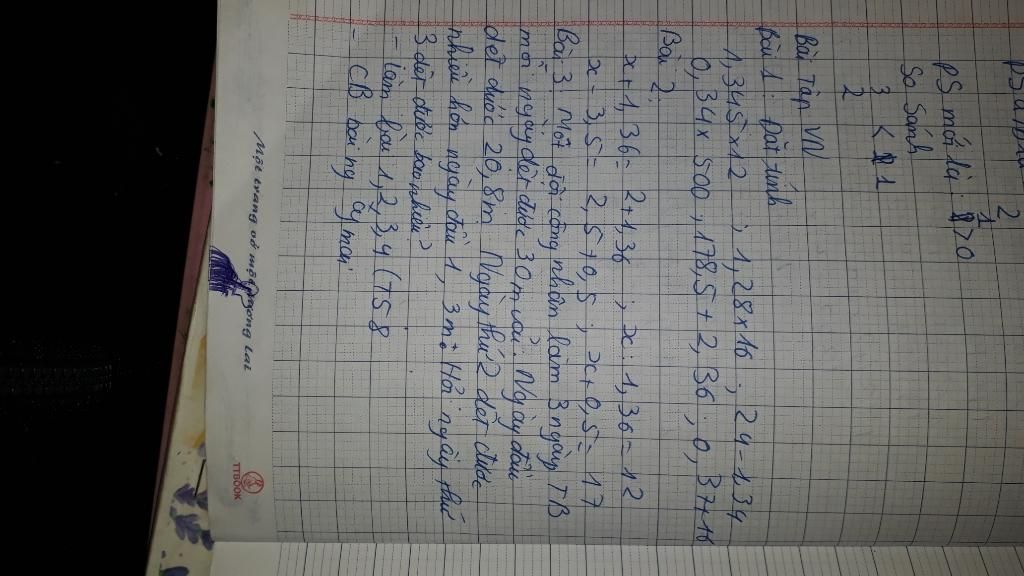 2
PS mới là: 1/2 > 0
So Sánh
3/2 < 1
Bài tập VN
Bài 1: Đặt tính
1,345 x 12 ; 1,28 x 16 ; 24 - 1,34
0,34 x 500 ; 178,5 + 2,36 ; 0,37 x 16
Bài 2:
x + 1,36 = 2 + 1,36 ; x : 1,36 = 12
x - 3,5 = 2,5 + 0,5 ; x + 0,5 = 17
Bài 3: Một đội công nhân làm 3 ngày TB
mỗi ngày dệt được 30m vải. Ngày đầu
dệt được 20,8m. Ngày thứ 2 dệt được
nhiều hơn ngày đầu 1,3m. Hỏi ngày thứ
3 dệt được bao nhiêu?
- Làm bài 1,2,3,4 (T58
- CB bài ng
Một trang vở một tương lai
TTBOOK